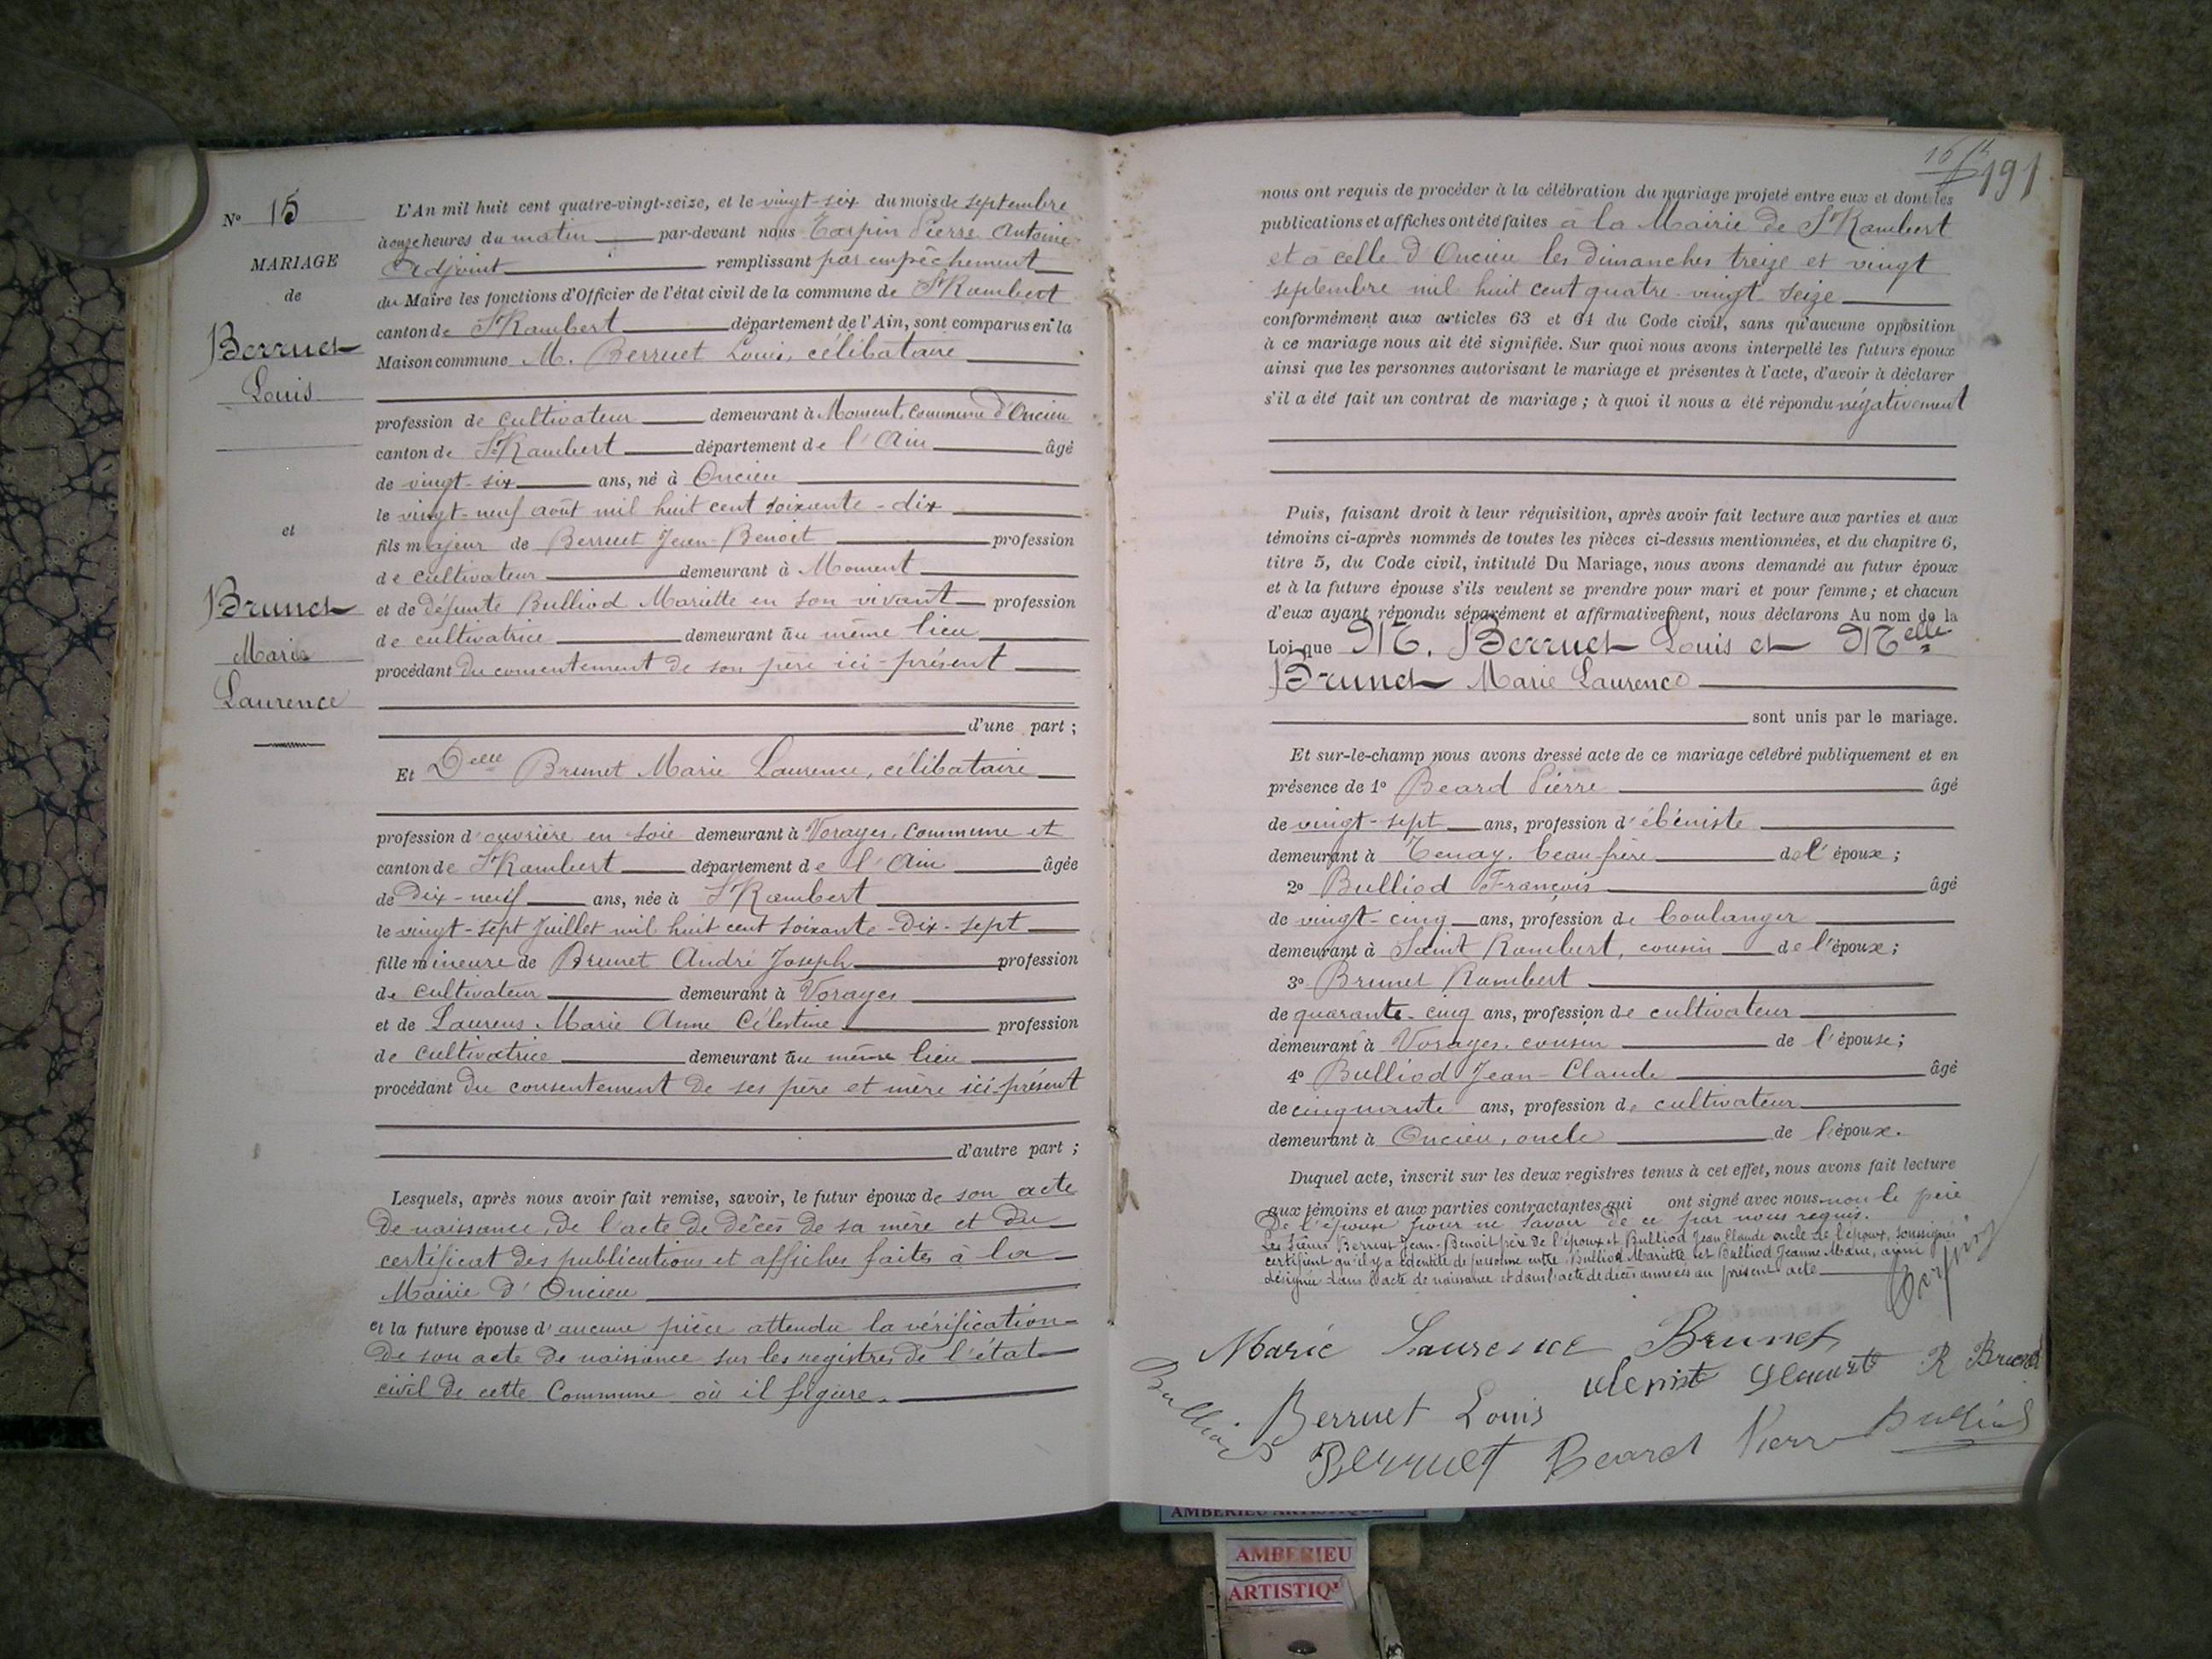 N° 15
MARIAGE
de
Berruet
Louis
et
Brunet
Marie
Laurence
L'An mil huit cent quatre-vingt-seize, et le vingt-six du mois de septembre
à onze heures du matin par-devant nous Tarpin Pierre Antoine
Adjoint remplissant par empêchement
du Maire les fonctions d'Officier de l'état civil de la commune de St Rambert
canton de St Rambert département de l'Ain, sont comparus en la
Maison commune M. Berruet Louis, célibataire
profession de cultivateur demeurant à Moment, commune d'Oncieu
canton de St Rambert département de l'Ain âgé
de vingt-six ans, né à Oncieu
le vingt-neuf août mil huit cent soixante-dix
fils majeur de Berruet Jean-Benoit profession
de cultivateur demeurant à Moment
et de défunte Bulliod Mariette en son vivant profession
de cultivatrice demeurant au même lieu
procédant du consentement de son père ici-présent
d'une part ;
Et Delle Brunet Marie Laurence, célibataire
profession d'ouvrière en soie demeurant à Vorages, commune et
canton de St Rambert département de l'Ain âgée
de Dix-neuf ans, née à St Rambert
le vingt-sept Juillet mil huit cent soixante-Dix-sept
fille mineure de Brunet André Joseph profession
de cultivateur demeurant à Vorages
et de Laurens Marie Anne Célestine profession
de cultivatrice demeurant au même lieu
procédant du consentement de ses père et mère ici-présent
d'autre part ;
Lesquels, après nous avoir fait remise, savoir, le futur époux de son acte
de naissance, de l'acte de décès de sa mère et du
certificat des publications et affiches faites à la
Mairie d'Oncieu
et la future épouse d'aucune pièce attendu la vérification
de son acte de naissance sur les registres de l'état
civil de cette Commune où il figure.
191
nous ont requis de procéder à la célébration du mariage projeté entre eux et dont les
publications et affiches ont été faites à la Mairie de St Rambert
et à celle d'Oncieu les dimanches treize et vingt
septembre mil huit cent quatre-vingt seize
conformément aux articles 63 et 64 du Code civil, sans qu'aucune opposition
à ce mariage nous ait été signifiée. Sur quoi nous avons interpellé les futurs époux
ainsi que les personnes autorisant le mariage et présentes à l'acte, d'avoir à déclarer
s'il a été fait un contrat de mariage ; à quoi il nous a été répondu négativement
Puis, faisant droit à leur réquisition, après avoir fait lecture aux parties et aux
témoins ci-après nommés de toutes les pièces ci-dessus mentionnées, et du chapitre 6,
titre 5, du Code civil, intitulé Du Mariage, nous avons demandé au futur époux
et à la future épouse s'ils veulent se prendre pour mari et pour femme ; et chacun
d'eux ayant répondu séparément et affirmativement, nous déclarons Au nom de la
Loi que M. Berruet Louis et Melle
Brunet Marie Laurence
sont unis par le mariage.
Et sur-le-champ nous avons dressé acte de ce mariage célébré publiquement et en
présence de 1° Beard Pierre âgé
de vingt-sept ans, profession d'ébéniste
demeurant à Tenay, beau-frère de l'époux ;
2° Bulliod François âgé
de vingt-cinq ans, profession de boulanger
demeurant à Saint Rambert, cousin de l'époux ;
3° Brunet Rambert
de quarante-cinq ans, profession de cultivateur
demeurant à Vorages, cousin de l'épouse ;
4° Bulliod Jean-Claude âgé
de cinquante ans, profession de cultivateur
demeurant à Oncieu, oncle de l'époux.
Duquel acte, inscrit sur les deux registres tenus à cet effet, nous avons fait lecture
aux témoins et aux parties contractantes qui ont signé avec nous non le père
de l'épouse pour ne savoir de ce par nous requis.
Les sieurs Berruet Jean-Benoit père de l'époux et Bulliod Jean Claude oncle de l'époux, soussignés
certifient qu'il y a identité de personne entre Bulliod Mariette et Bulliod Jeanne Marie, ainsi
désignée dans l'acte de naissance et dans l'acte de décès annexés au présent acte
Tarpin
Marie Laurence Brunet
R Brunet
Bulliod
Berruet Louis
Berruet Beard Pierre Bulliod
AMBERIEU ARTISTIQUE
AMBERIEU
ARTISTIQ